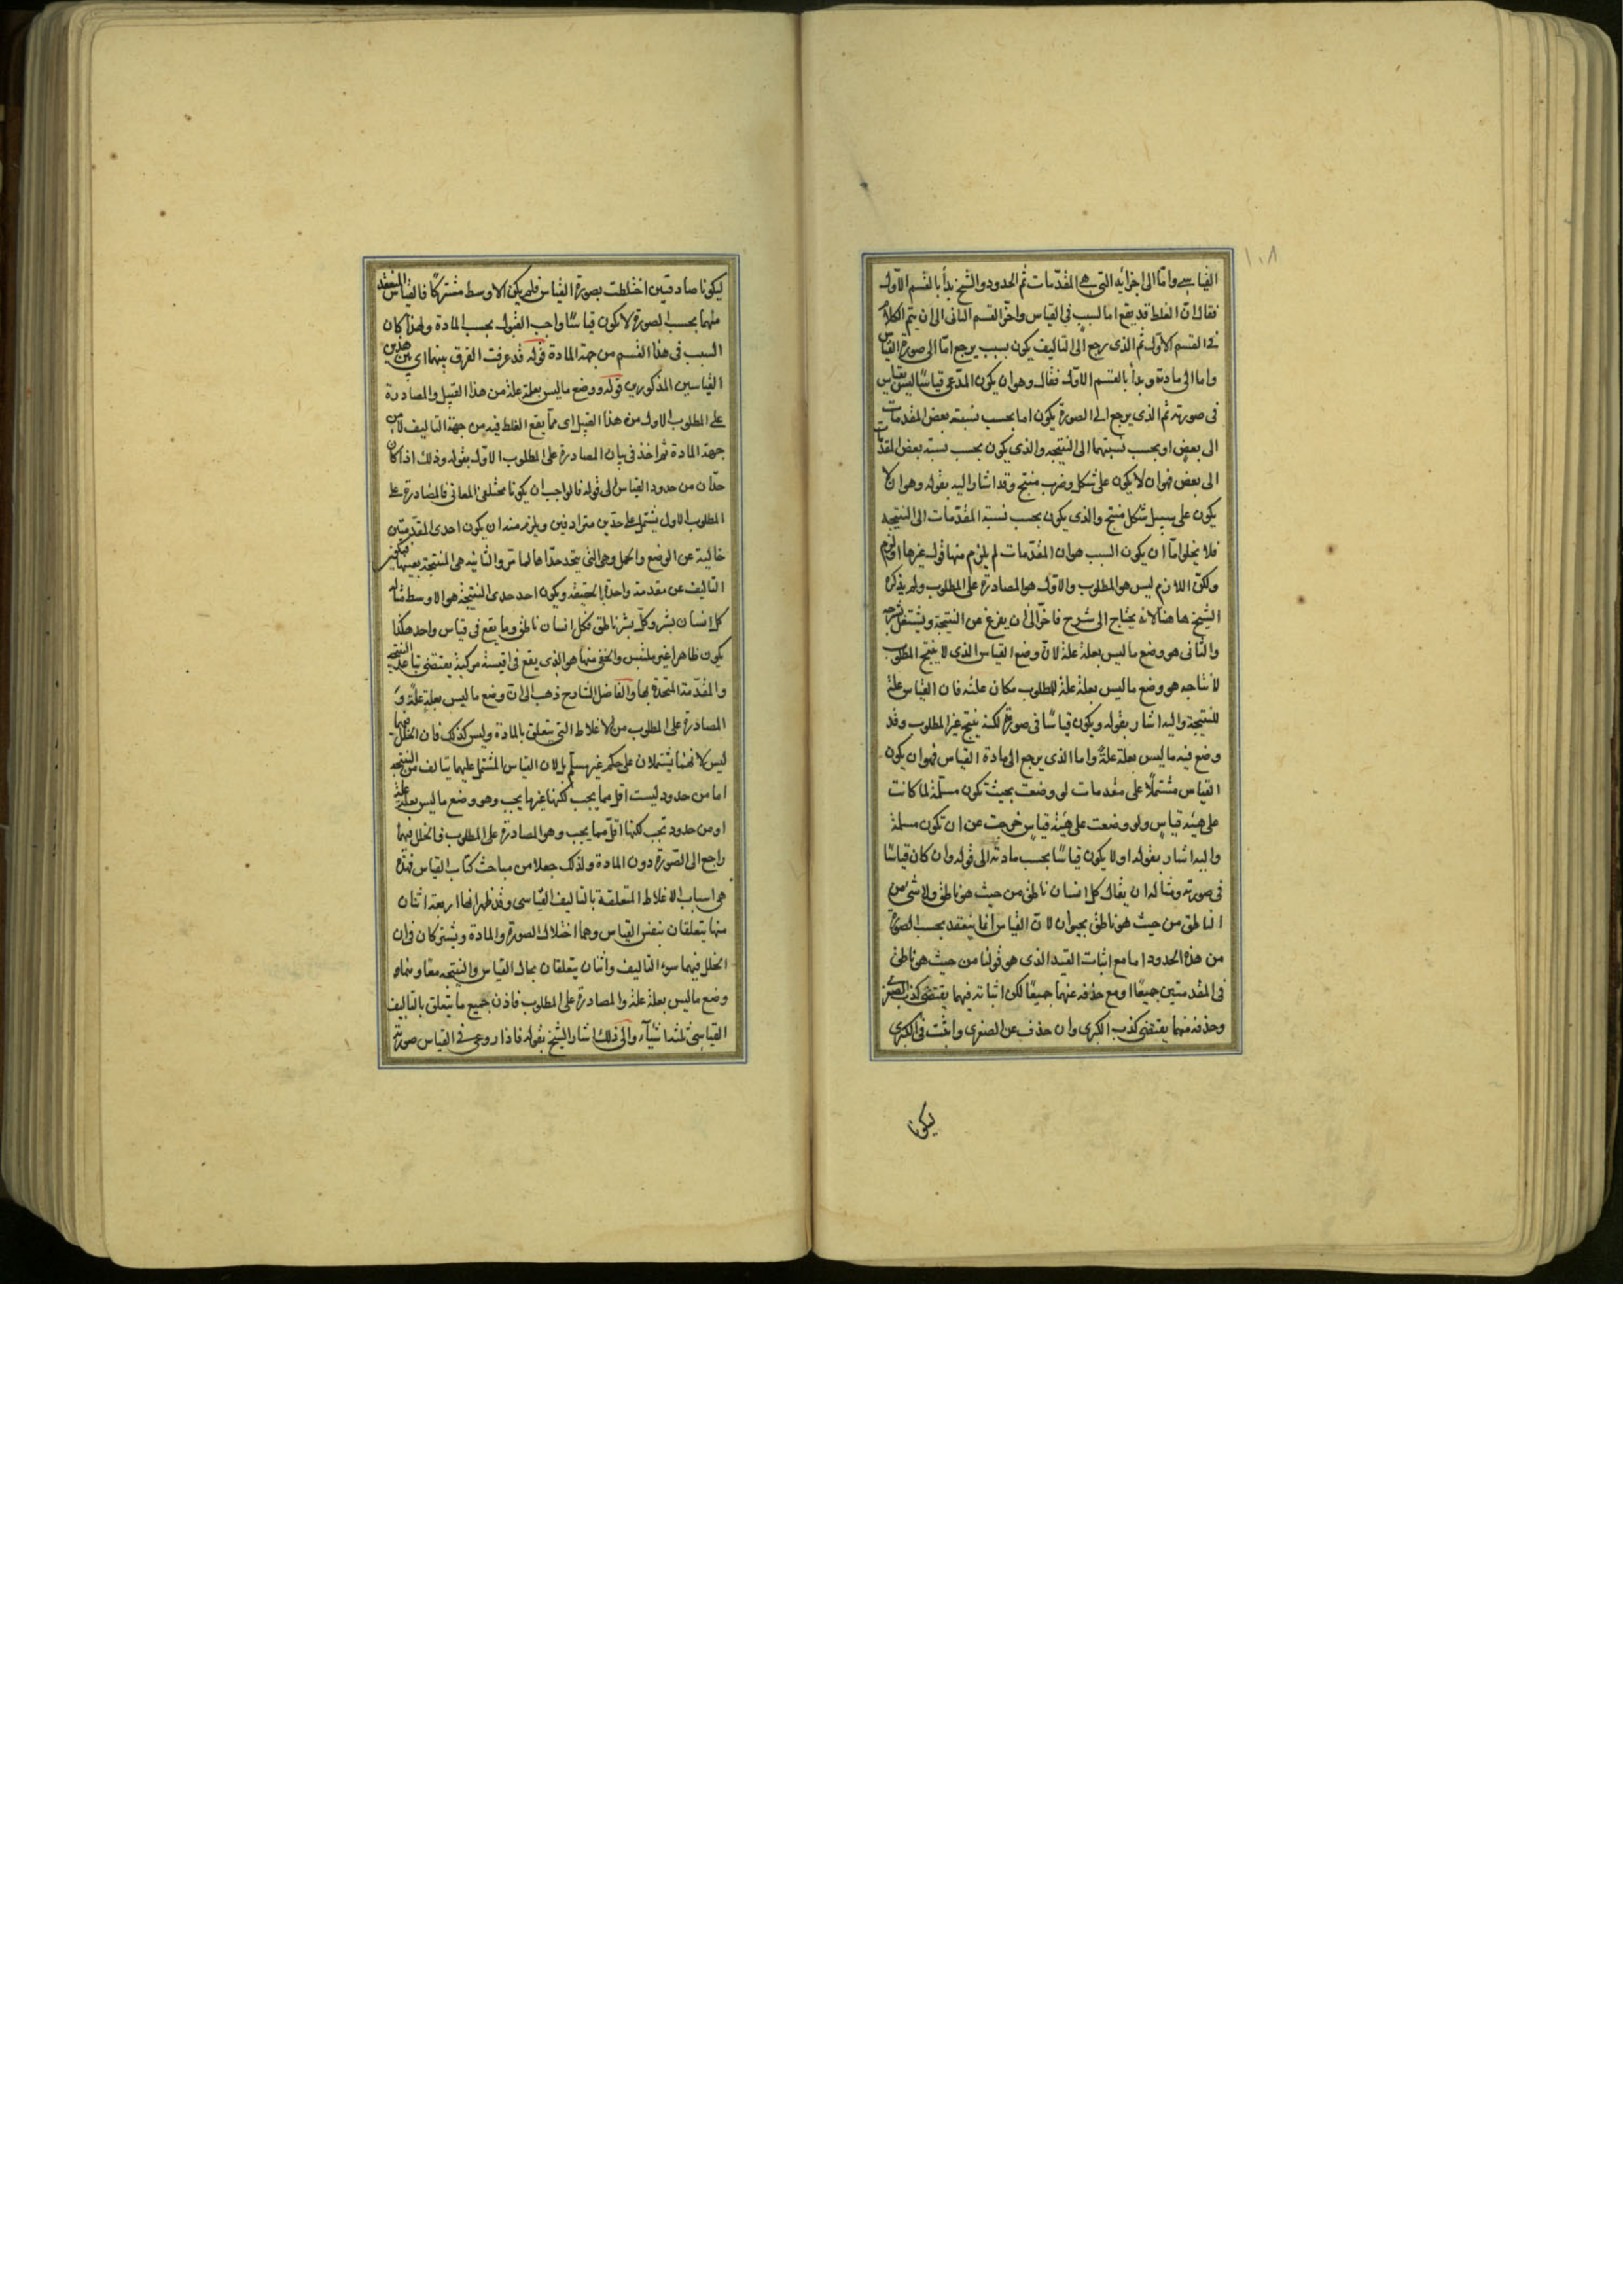 ١٠٨
القياسى واما الى اجزائه التى هى المقدمات ثم الحدود والشيخ بدأ بالقسم الاول
فقال ان الغلط قد يقع اما لسبب فى القياس واخر القسم الثانى الى ان يتم الكلام
فى القسم الاول ثم الذى يرجع الى التاليف يكون بسبب يرجع اما الى صورة القياس
واما الى مادته وبدأ بالقسم الاول فقال وهو ان يكون المدعى قياسًا ليس بقياس
فى صورته ثم الذى يرجع الى الصورة يكون اما بحسب نسبة بعض المقدمات
الى بعض او بحسب نسبتهما الى النتيجه والذى يكون بحسب نسبة بعض المقدمات
الى بعض فهو ان لا يكون على شكل وضرب منتج وقد اشار اليه بقوله وهو ان لا
يكون على سبيل شكل منتج والذى يكون بحسب نسبة المقدمات الى النتيجه
فلا يخلوا اما ان يكون السبب هو ان المقدمات لم يلزم منها قول غيرها او لزم
ولكن اللازم ليس هو المطلوب والاول هو المصادرة على المطلوب ولم يذكره
الشيخ هاهنا لانه يحتاج الى شرح فاخر الى ان يفرغ عن النتيجة ويشتغل بشرحه
والثانى هو وضع ما ليس بعلة علة لان وضع القياس الذى لا ينتج المطلوب
لانتاجه هو وضع ما ليس بعلة علة للمطلوب مكان علته فان القياس علة
للنتيجة واليه اشار بقوله ويكون قياسًا فى صورة لكنه ينتج غير المطلوب وقد
وضع فيه ما ليس بعلة علة واما الذى يرجع الى مادة القياس فهو ان يكون
القياس مشتملًا على مقدمات لو وضعت بحيث تكون مسلمة لما كانت
على هيئة قياس ولو وضعت على هيئة قياس خرجت عن ان تكون مسلمة
واليه اشار بقوله او لا يكون قياسًا بحسب مادته الى قوله وان كان قياسًا
فى صورته ومثاله ان يقال كل انسان ناطق من حيث هو ناطق ولا شئ من
الناطق من حيث هو ناطق بحيوان لان القياس انما ينعقد بحسب الصورة
من هذه الحدود اما مع اثبات القيد الذى هو قولنا من حيث هو ناطق
فى المقدمتين جميعًا او مع حذفه عنهما جميعًا لكن اثباته فيهما يقتضى كذب الصغرى
وحذفه منهما يقتضى كذب الكبرى وان حذف عن الصغرى واثبت فى الكبرى
ليكونا
ليكونا صادقتين اختلطت بصورة القياس فلم يكن الاوسط مشتركًا فالقياس المنعقد
منهما بحسب الصورة لا يكون قياسًا واجب القبول بحسب المادة ولهذا كان
السبب فى هذا القسم من جهة المادة قوله قد عرفت الفرق بينهما اى بين هذين
القياسين المذكورين قوله ووضع ما ليس بعلة علة من هذا القبيل والمصادرة
على المطلوب الاول من هذا القبيل اى مما يقع الغلط فيه من جهة التاليف لا من
جهة المادة ثم اخذ فى بيان المصادرة على المطلوب الاول بقوله وذلك اذا كان
حدان من حدود القياس الى قوله فالواجب ان يكونا مختلفى المعانى فالمصادرة على
المطلوب الاول تشتمل على حدين مترادفين ويلزم منه ان يكون احدى المقدمتين
خالية عن الوضع والحمل وهى التى يتحد حداها لما مر والثانيه هى المنتجة بعينها فيكون
التاليف عن مقدمة واحدة بالحقيقه ويكون احد حدى النتيجة هو الاوسط مثاله
كل انسان بشر وكل بشر ناطق فكل انسان ناطق وما يقع فى قياس واحد هكذا
يكون ظاهرا غير ملتبس والخفى منها هو الذى يقع فى اقيسة مركبة يقتضى تباعد النتيجه
والمقدمة المتحدة بها والفاضل الشارح ذهب الى ان وضع ما ليس بعلة علة و
المصادرة على المطلوب من الاغلاط التى يتعلق بالمادة وليس كذلك فان الخلل فيهما
ليس لانهما يشتملان على حكم غير مسلم بل لان القياس المشتمل عليهما يتالف من النتيجه
اما من حدود ليست اقل مما يجب لكنها غيرها يجب وهو وضع ما ليس بعلة علة
او من حدود تجب لكنها اقل مما يجب وهو المصادرة على المطلوب فالخلل فيهما
راجع الى الصورة دون المادة ولذلك جعلا من مباحث كتاب القياس فهذه
هى اسباب الاغلاط المتعلقة بالتاليف القياسى وقد ظهر انها اربعة اثنان
منها يتعلقان بنفس القياس وهما اختلال الصورة والمادة ويشتركان فى ان
الخلل فيهما سوء التاليف واثنان يتعلقان بحال القياس والنتيجه معا وهما
وضع ما ليس بعلة علة والمصادرة على المطلوب فاذن جميع ما يتعلق بالتاليف
القياسى ثلثة اشيآء والى ذلك اشار الشيخ بقوله فاذا روعى فى القياس صورته